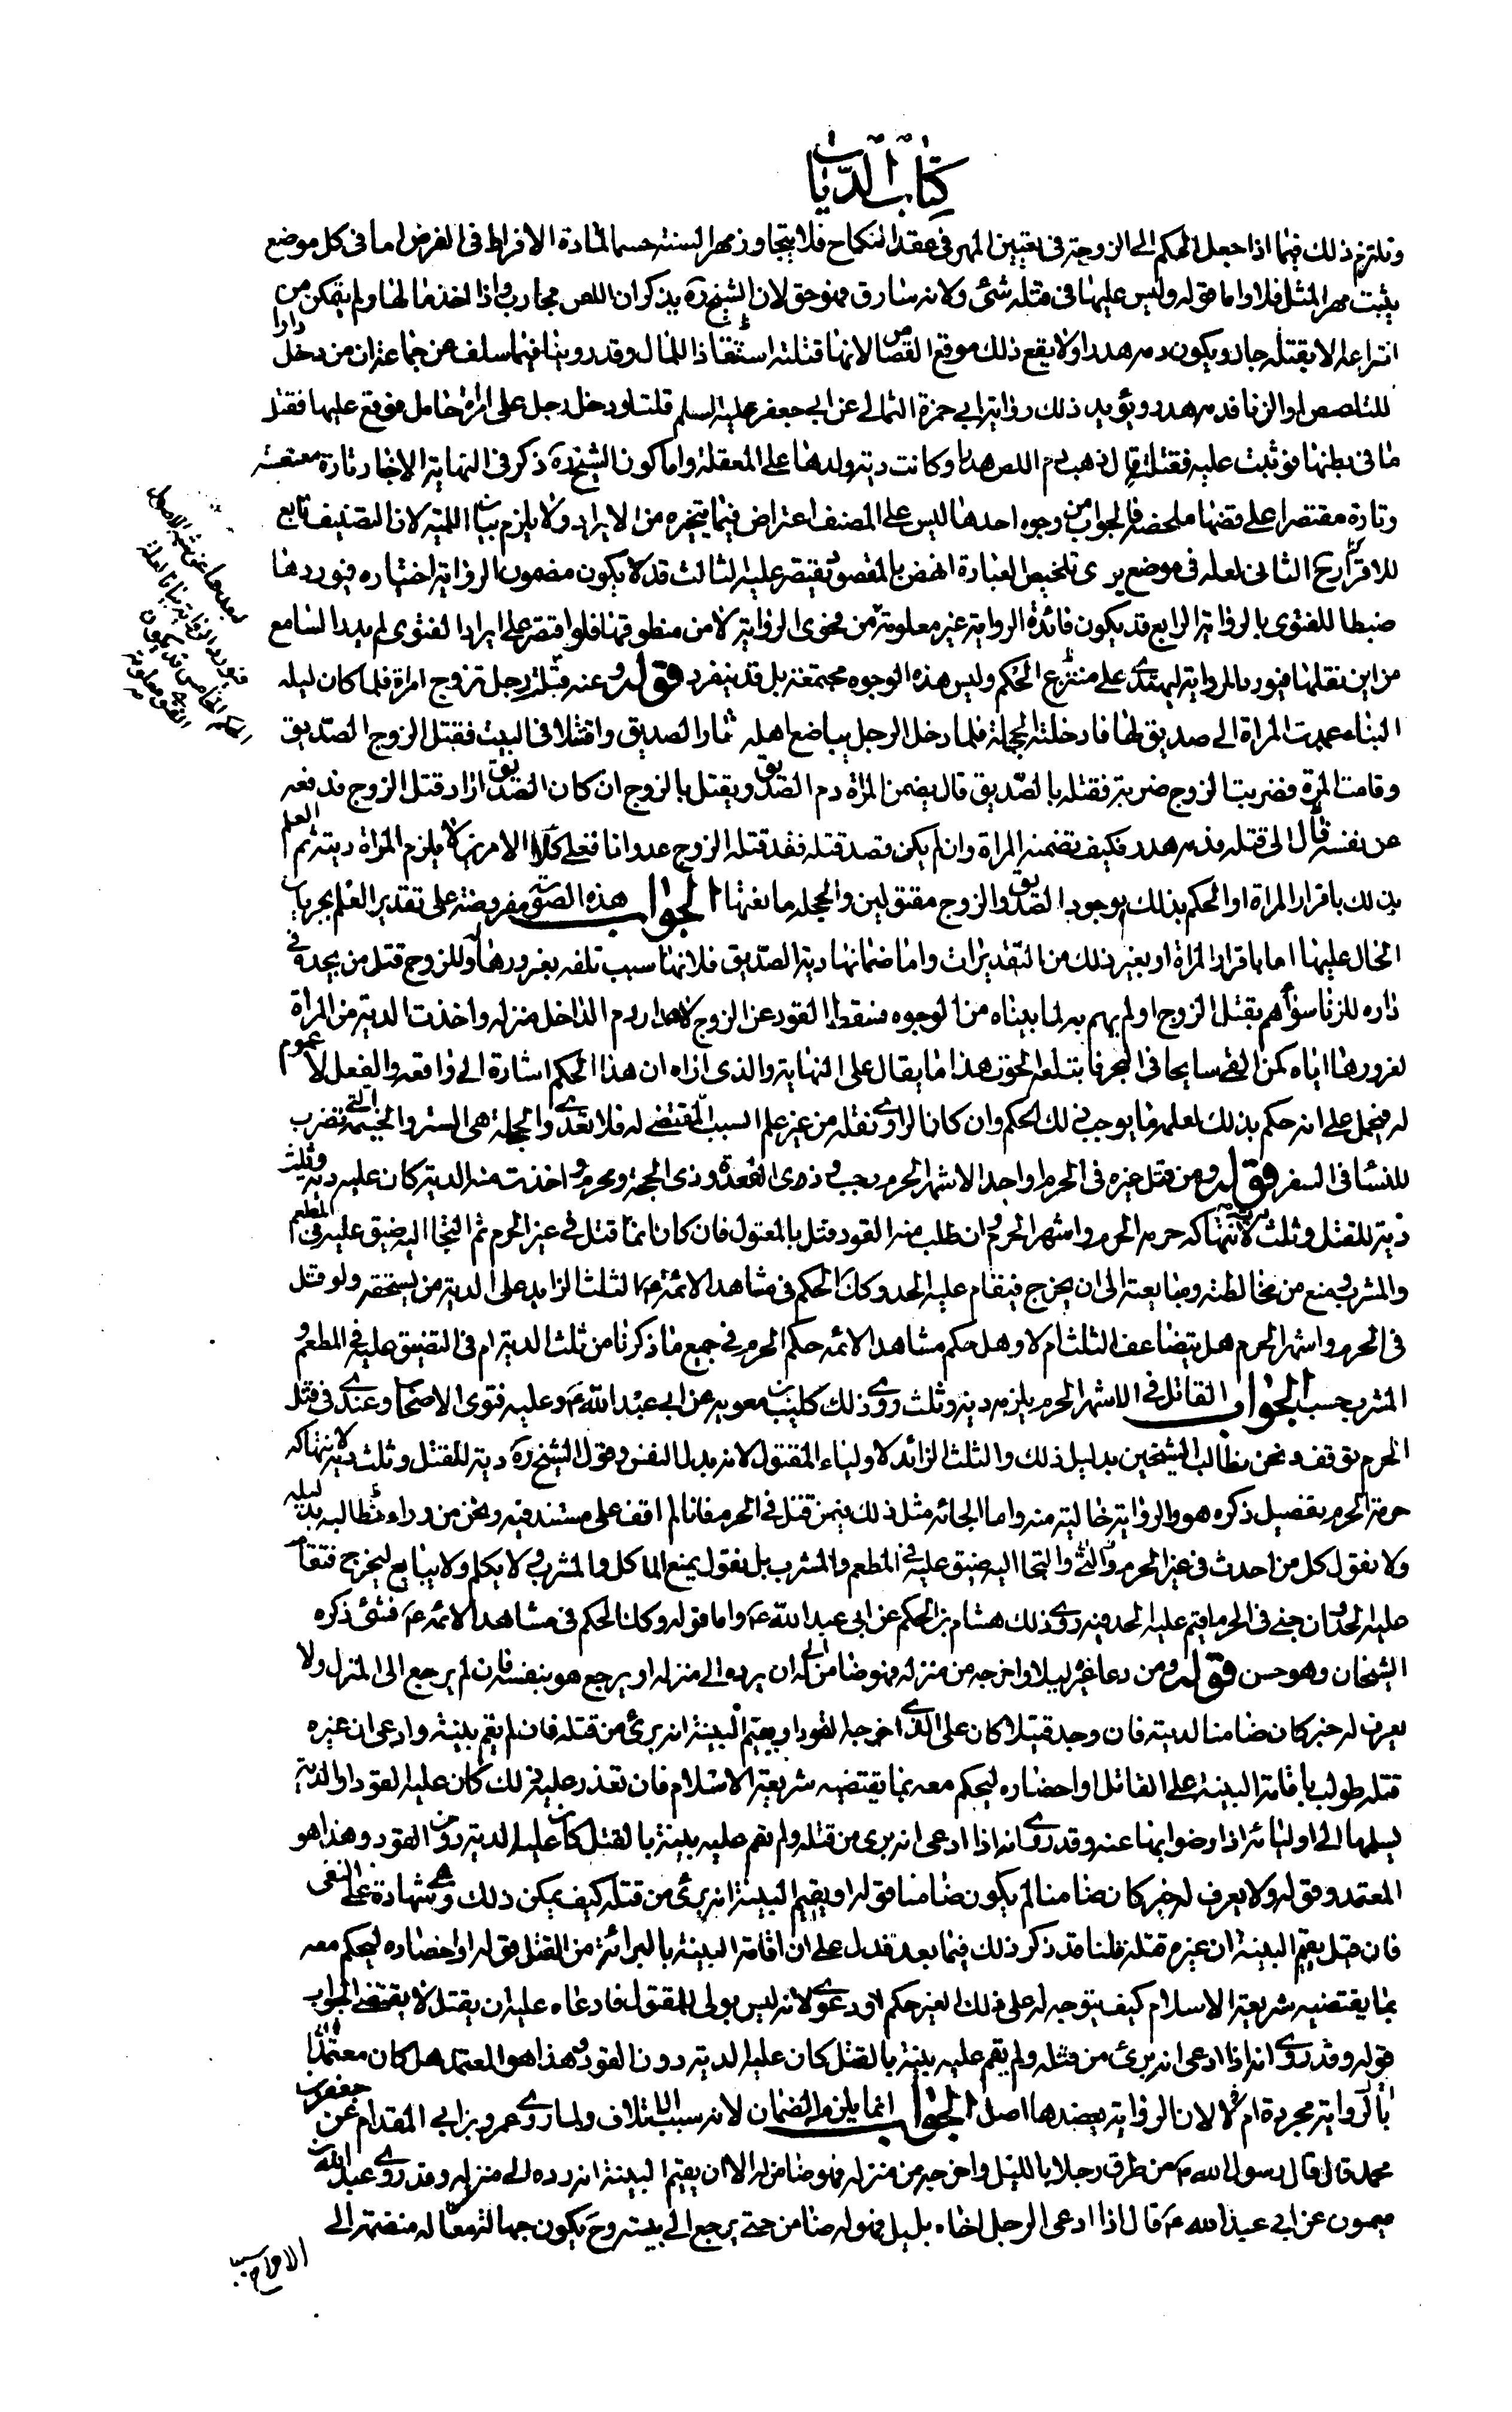 كتاب الديات
ونلتزم ذلك فيما اذا جعل الحكم الى الزوجة فى تعيين المهر فى عقد النكاح فلا يتجاوز مهر السنة حسما لمادة الافراط فى الفرض اما فى كل موضع
يثبت مهر المثل فلا واما قوله وليس عليها فى قتله شئ ولانه سارق فهو حق لان الشيخ ره يذكر ان اللص محارب واذا اخذ مالها ولم يتمكن من
انتزاعه الا بقتله جاز ويكون دمه هدرا ولا يقع ذلك موقع القصاص لانها قتلته استنقاذا للمال وقد روينا فيما سلف عن جماعة ان من دخل دارا
للتلصص او الزنا فدمه هدر ويؤيد ذلك رواية ابى حمزة الثمالى عن ابى جعفر عليه السلم قلت لو دخل رجل على امراة حامل فوقع عليها فقتل
ما فى بطنها فوثبت عليه فقتلته قال ذهب دم اللص هدرا وكانت دية ولدها على المعقلة واما كون الشيخ ره ذكر فى النهاية الاخبار تارة
وتارة مقتصرا على فضها ملخصه فالجواب من وجوه احدها ليس على المصنف اعتراض فيما يتخيره من الايراد ولا يلزم بيان اللمية لان التصنيف تابع
للاقتراح الثانى لعله فى موضع يرى تلخيص العبارة انهض بالمقصود فيقتصر عليه الثالث قد لا يكون مضمون الرواية اختياره فيوردها
ضبطا للفتوى بالرواية الرابع قد يكون فائدة الرواية غير معلومة من فحوى الرواية لا من منطوقها فلو اقتصر على ايراد الفتوى لم يدر السامع
من اين نقلها فيورد الرواية ليهتدى على منتزع الحكم وليس هذه الوجوه مجتمعة بل قد ينفرد قوله وعنه قلت رجل تزوج امراة فلما كان ليله
البناء عمدت المراة الى صديق لها فادخلته الحجلة فلما دخل الرجل يباضع اهله ثار الصديق واقتتلا فى البيت فقتل الزوج الصديق
وقامت المراة فضربت الزوج ضربة فقتلته بالصديق قال يضمن المراة دم الصديق ويقتل بالزوج ان كان الصديق اراد قتل الزوج فدفعه
عن نفسه فآل الى قتله فدمه هدر فكيف تضمنه المراة وان لم يكن قصد قتله فقد قتله الزوج عدوانا فعلى كلا الامرين لا يلزم المراة ديته ثم العلم
بذلك باقرار المراة او الحكم بذلك بوجود الصديق والزوج مقتولين والحجلة ما نعتها الجواب هذه الصورة مفروضة على تقدير العلم بجريان
الحال عليها اما باقرار المراة او بغير ذلك من التقديرات واما ضمانها دية الصديق فلانها سبب تلفه بغرورها وللزوج قتل من يجده فى
داره للزنا سواء هم بقتل الزوج او لم يهم به لما بيناه من الوجوه فسقط القود عن الزوج لاهدار دم الداخل منزله واخذت الدية من المراة
لغرورها اياه كمن القى سابحا فى البحر فابتلعه الحوت هذا ما يقال على النهاية والذى اراه ان هذا الحكم اشارة الى واقعة والفعل لا عموم
له فيحمل على انه حكم بذلك لعلمه بما يوجب ذلك الحكم وان كان الراوى نقله من غير علم السبب المقتضى له فلا تعدى والحجلة هى الستر والخيمة التى تضرب
للنساء فى السفر قوله ومن قتل غيره فى الحرم او احد الاشهر الحرم رجب وذى القعدة وذى الحجة ومحرم واخذت منه الدية كان عليه دية وثلث
دية للقتل وثلث لانتهاكه حرمة الحرم واشهر الحرم وان طلب منه القود قتل بالمقتول فان كان انما قتل فى غير الحرم ثم التجا اليه ضيق عليه فى المطعم
والمشرب ومنع من مخالطته ومبايعته الى ان يخرج فيقام عليه الحد وكذا الحكم فى مشاهد الائمة ع الثلث الزايد على الدية من يستحقه ولو قتل
فى الحرم واشهر الحرم هل يتضاعف الثلث ام لا وهل حكم مشاهد الائمه حكم الحرم فى جميع ما ذكرنا من ثلث الدية ام فى التضييق عليه فى المطعم و
المشرب حسب الجواب القاتل فى الاشهر الحرم يلزمه دية وثلث روى ذلك كليب بن معوية عن ابى عبد الله ع وعليه فتوى الاصحاب وعندى فى قتل
الحرم توقف ونحن نطالب الشيخين بدليل ذلك والثلث الزائد لاولياء المقتول لانه بدل النفس وقول الشيخ ره دية للقتل وثلث دية لانتهاكه
حرمة الحرم تفصيل ذكره هو والرواية خالية منه واما الجائه مثل ذلك فيمن قتل فى الحرم فانا لم اقف على مستند فيه ونحن من وراء مطالبه بدليله
ولا نقول كل من احدث فى غير الحرم والتجا اليه ضيق عليه فى المطعم والمشرب بل نقول يمنع الماكل والمشرب ولا يكلم ولا يبايع ليخرج فتقام
عليه الحد وان جنى فى الحرم اقيم عليه الحد فيه روى ذلك هشام بن الحكم عن ابى عبد الله ع واما قوله وكذا الحكم فى مشاهد الائمه ع فشئ ذكره
الشيخان وهو حسن قوله ومن دعا غيره ليلا واخرجه من منزله فهو ضامن له الى ان يرده الى منزله او يرجع هو بنفسه فان لم يرجع الى المنزل ولا
يعرف له خبر كان ضامنا لديته فان وجد قتيلا كان على الذى اخرجه القود او يقيم البينة انه برئ من قتله فان لم يقم بينة وادعى ان غيره
قتله طولب باقامة البينة على القاتل او احضاره ليحكم معه بما يقتضيه شريعة الاسلام فان تعذر عليه ذلك كان عليه القود او الدية
يسلمها الى اوليائه اذا رضوا بها عنه وقد روى انه اذا ادعى انه برى من قتله ولم تقم عليه بينة بالقتل كان عليه الدية دون القود وهذا هو
المعتمد وقوله ولا يعرف له خبر كان ضامنا لم يكون ضامنا قوله او يقيم البينة انه برئ من قتله كيف يمكن ذلك وهى شهادة على النفى
فان قيل يقيم البينة ان غيره قتله قلنا قد ذكر ذلك فيما بعد فدل على ان اقامة البينة بالبرائة من القتل قوله او احضاره ليحكم معه
بما يقتضيه شريعة الاسلام كيف يتوجه له على ذلك الغير حكم او دعوى لانه ليس بولى للمقتول فادعاه عليه ان يقتل لا يقتضى الجواب
قوله وقد روى انه اذا ادعى انه برئ من قتله ولم يقم عليه بينة بالقتل كان عليه الدية دون القود وهذا هو المعتمد هل كان معتمدا
بالرواية مجردة ام لا لان الرواية يعضدها اصل الجواب انما يلزمه الضمان لانه سبب الاتلاف ولما روى عمرو بن ابى المقدام عن جعفر بن
محمد قال قال رسول الله ص من طرق رجلا بالليل واخرجه من منزله فهو ضامن له الا ان يقيم البينة انه رده الى منزله وقد روى عبد الله بن
ميمون عن ابى عبد الله ع قال اذا ادعى الرجل اخاه بليل فهو له ضامن حتى يرجع الى بيته وح يكون جهالته معاله منضمة الى
الاخراج سببا